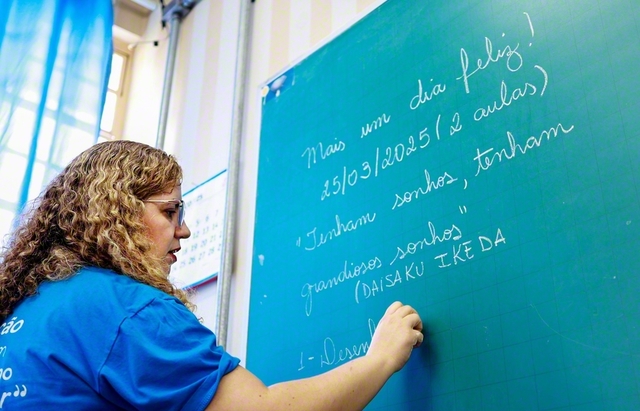 Mais um dia feliz!
25/03/2025 (2 aulas)
"Tenham sonhos, tenham
grandiosos sonhos"
(DAISAKU IKEDA
1- Desen